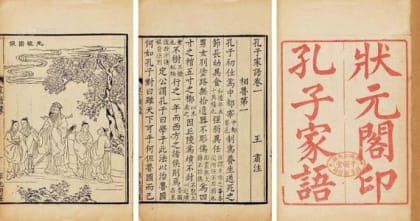 狀元閣印
孔子家語
孔子家語卷一
王肅注
相魯第一
孔子初仕為中都宰制為養生送死之
節長幼異食強弱異任
男女別塗路無拾遺器不彫偽為四
寸之棺五寸之槨因丘陵為墳不封
不樹行之一年而西方之諸侯則焉
定公謂孔子曰學子此法以治魯國
何如孔子對曰雖天下可乎何但魯國而已